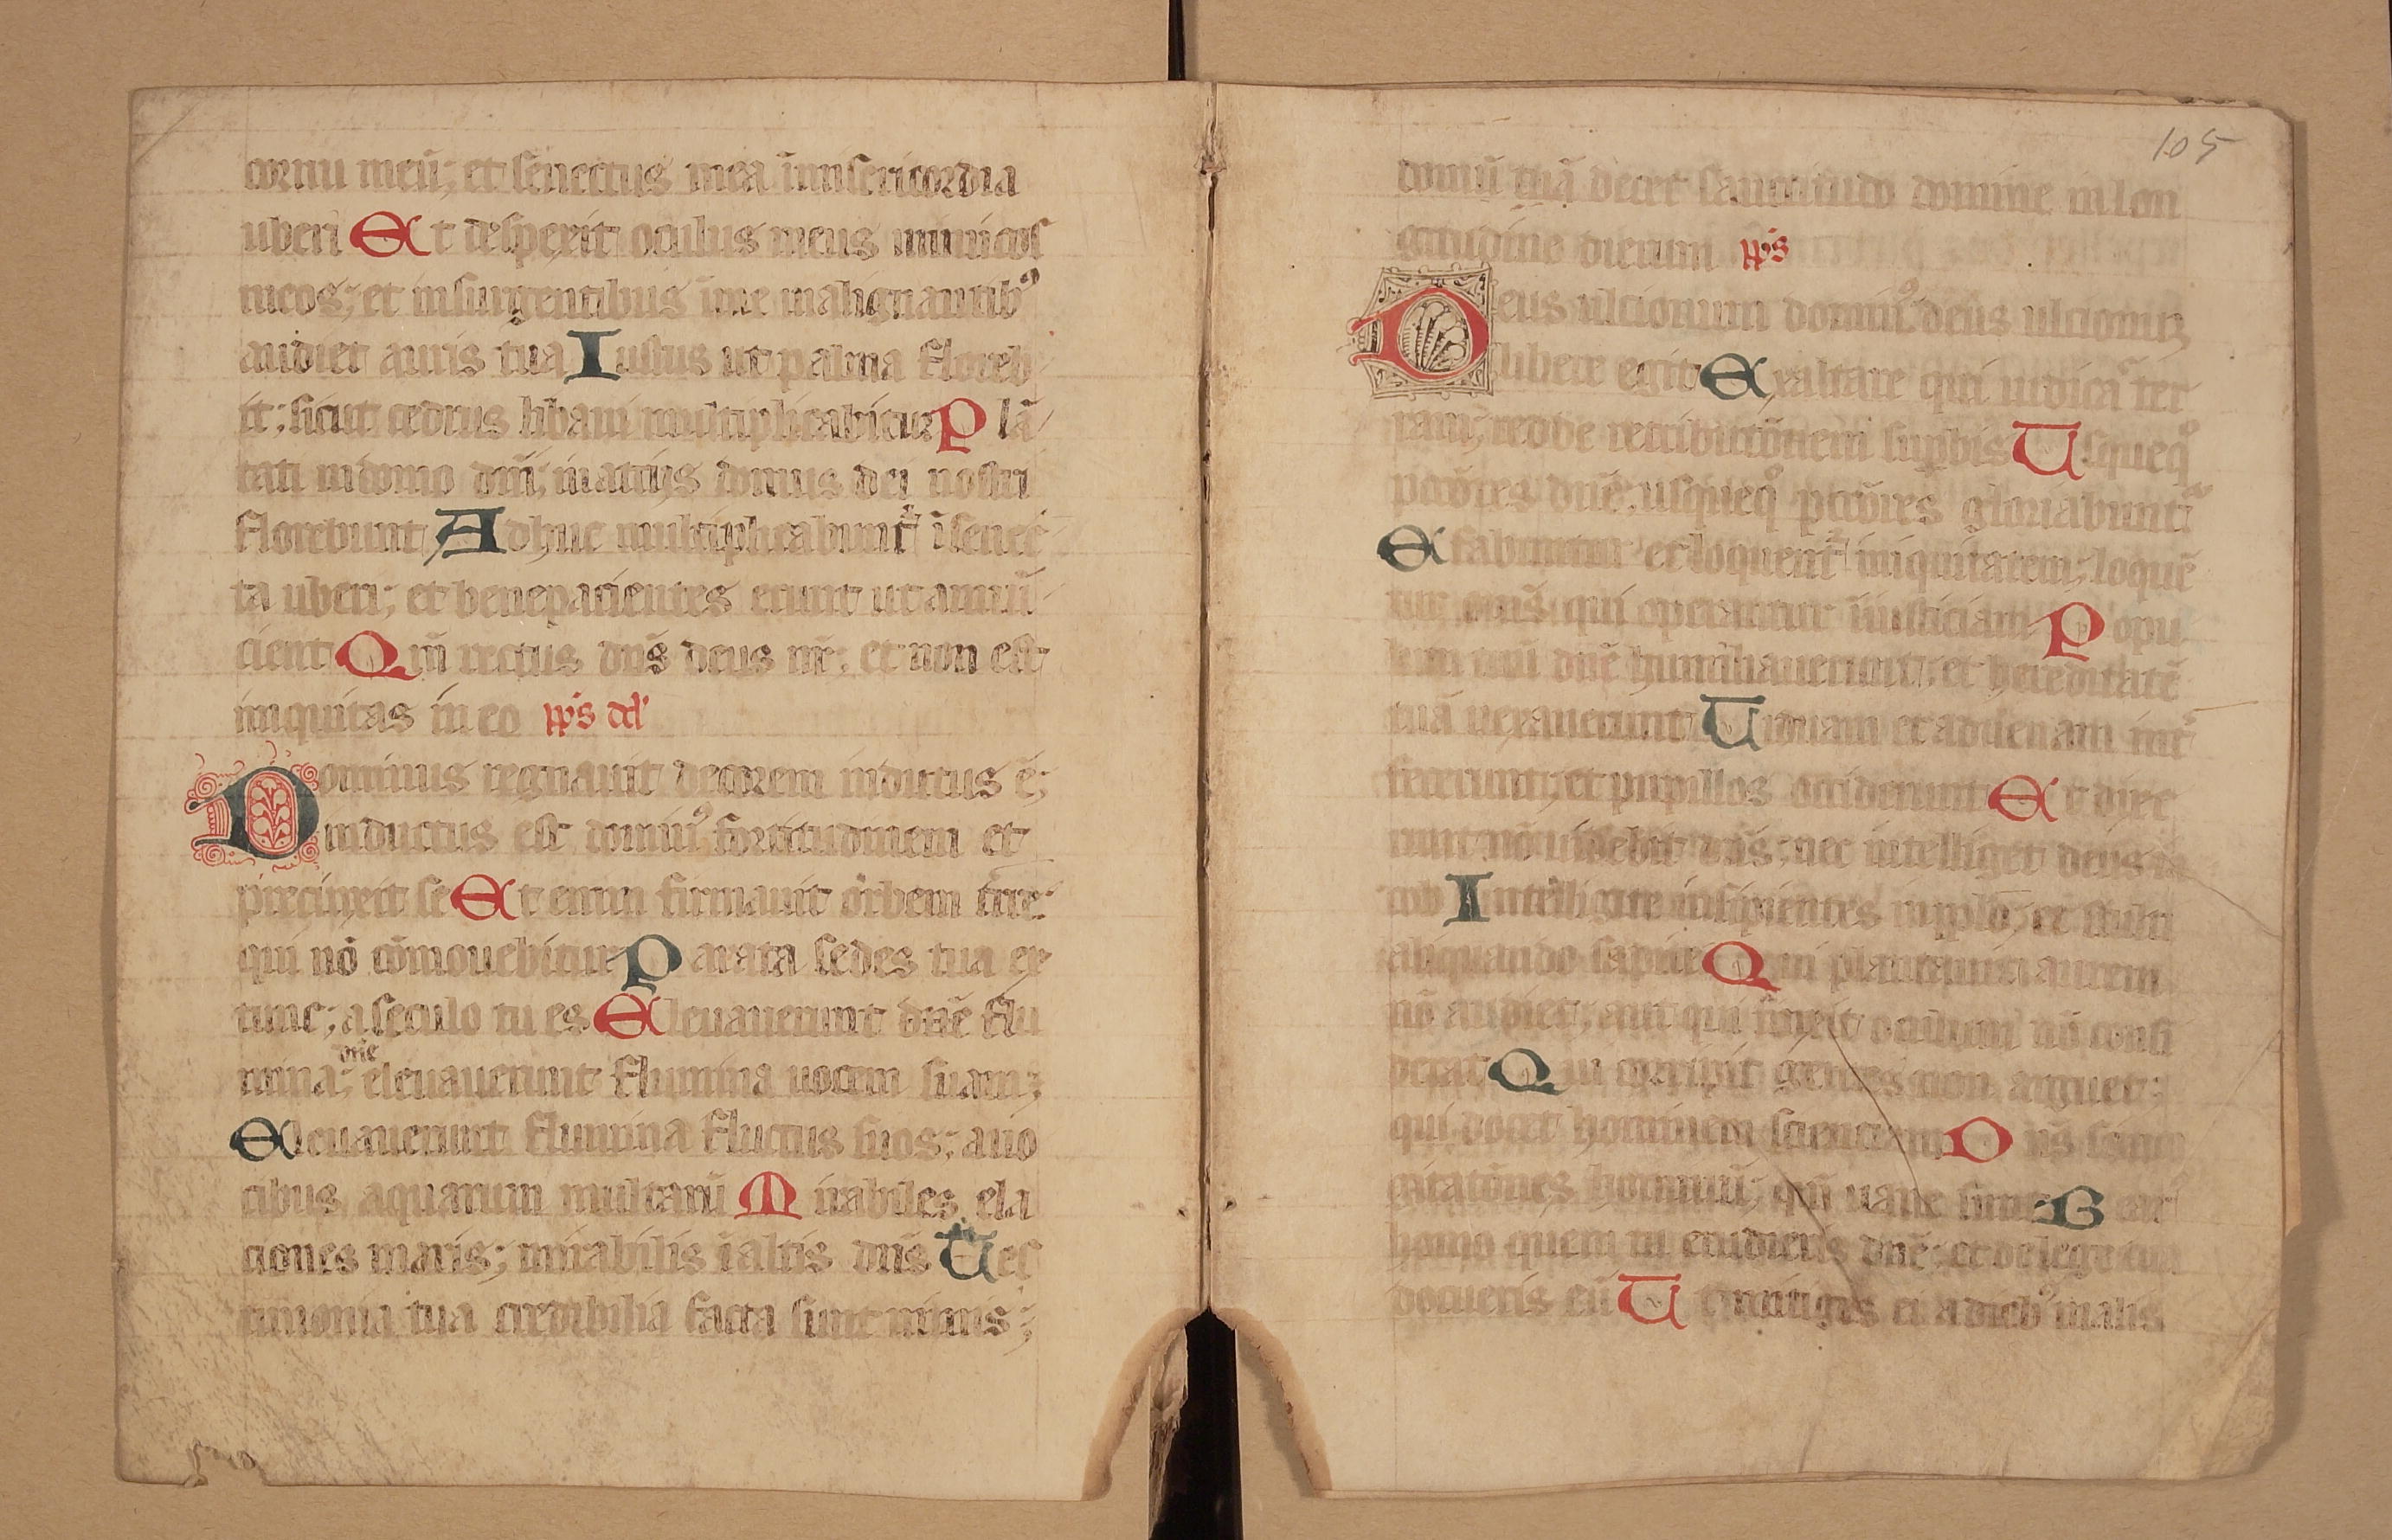 cornu meū; et senectus mea ī misericordia
uberi Et desperit oculus meus inimicos
meos; et insurgentibus ī me malignantibꝰ
audiet auris tua Iustus ut palma floreb
it; sicut cedrus libani multiplicabitur Plā
tati in domo dn̄i; in atriis domus dei nostri
florebunt Adhuc multiplicabunt̄ ī senec
ta uberi; et bene pacientes erunt ut annū
cient Qm̄ rectus dn̄s deus nr̄; et non est
iniquitas in eo pp̄s dd
Dominus regnauit decorem indutus ē;
inductus est dominꝰ fortitudinem et
precinxit se Et enim firmauit orbem terre
qui nō cōmouebitur Parata sedes tua ex
tunc; a seculo tu es Eleuauerunt dn̄e flu
dn̄e
mina; eleuauerunt flumina uocem suam;
Eleuauerunt flumina fluctus suos; a uo
cibus aquarum multarū Mirabiles ela
ciones maris; mirabilis ī altis dn̄s Tes
timonia tua credibilia facta sunt nimis;
105
domū tuā decet sanctitudo domine in lon
gitudine dierum pp̄s
Deus ulcionum dominꝰ deus ulcionū
libere egit Exaltare qui iudicas ter
ram; redde retributōnem supbis Usqueqͦ
pcc̄ores dn̄e; usqueqͦ pcc̄ores gloriabunt̄
Effabuntur et loquent̄ iniquitatem; loquē
tur om̄s qui operantur iniusticiam Popu
lum tuū dn̄e humiliauerunt; et hereditatē
tuā uexauerunt Uiduam et aduenam int̄
fecerunt; et pupillos occiderunt Et dixe
runt nō uidebit dn̄s; nec intelliget deus ia
cob Intelligite insipientes in pplō; et stulti
aliquando sapite Qui plantauit aurem
nō audiet; aut qui finxit oculum nō consi
derat Qui corripit gentes non arguet;
qui docet hominem scienciam Dn̄s scit co
gitatōnes hominū; qm̄ uane sunt Beat
homo quem tu erudieris dn̄e; et de lege tua
docueris eū Ut mitiges ei a diebꝰ malis